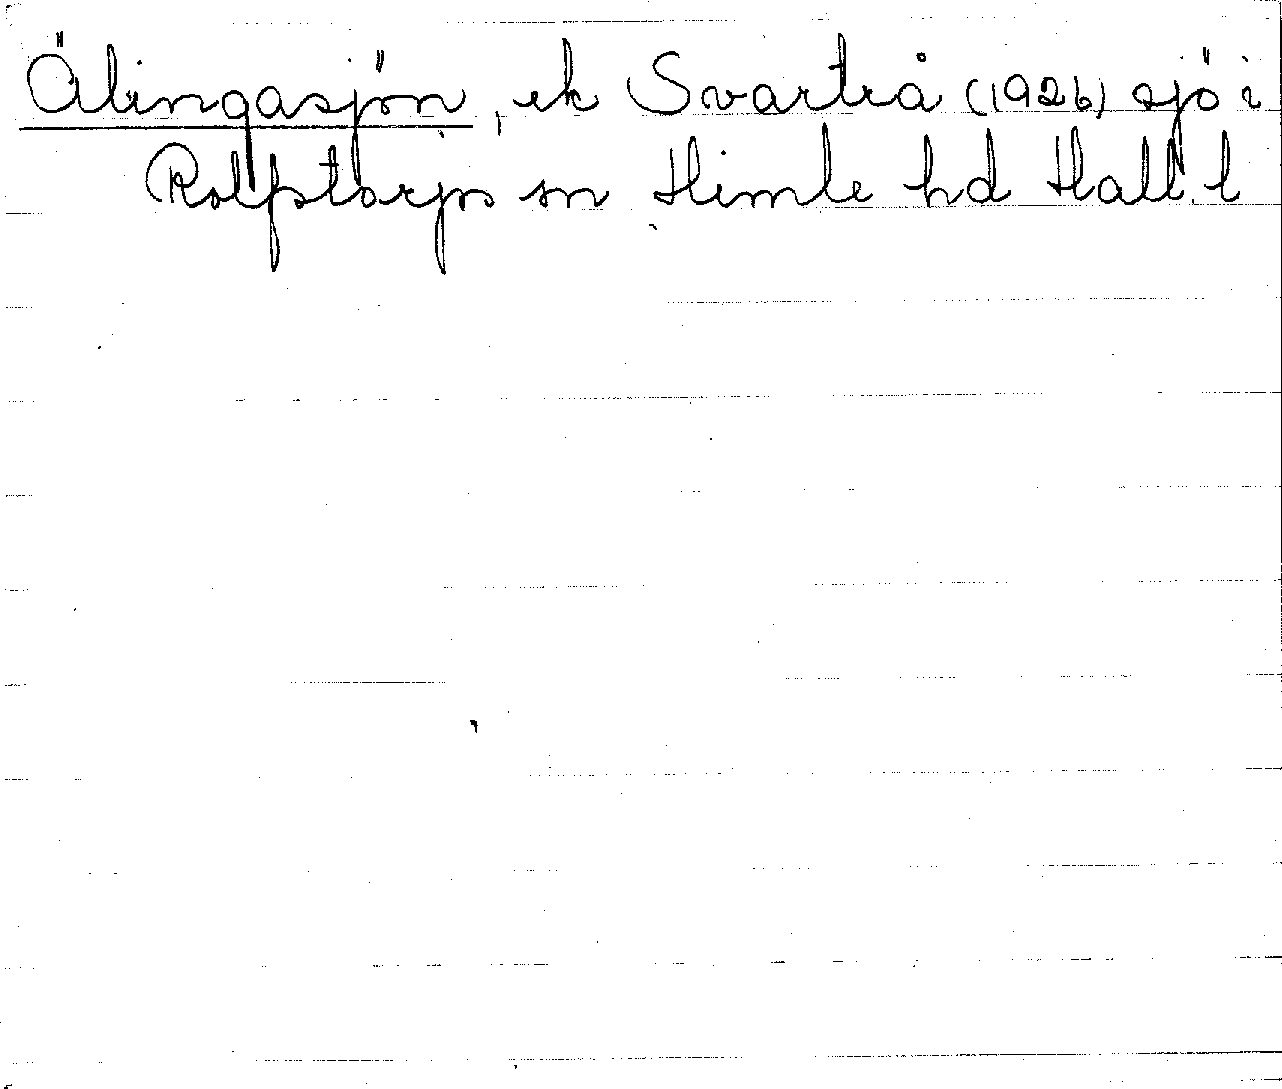 Älingasjön, ek Svartrå (1926) sjö i
Rolfstorps sn Himle hd Hall. l